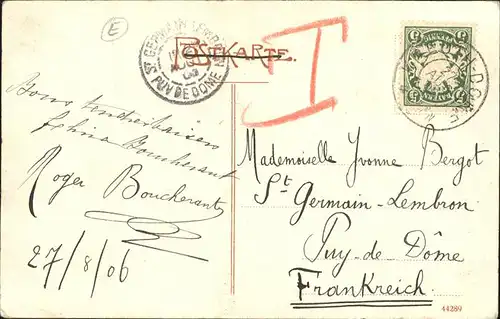 E
ST GERMAIN LEMBRON
PUY DE DOME
POSTKARTE.
T
BAYERN
5 5
5 5
Bons
Roger Boucherant
27/8/06
Mademoiselle Yvonne Bergot
St Germain-Lembron
Puy-de-Dôme
Frankreich
44289